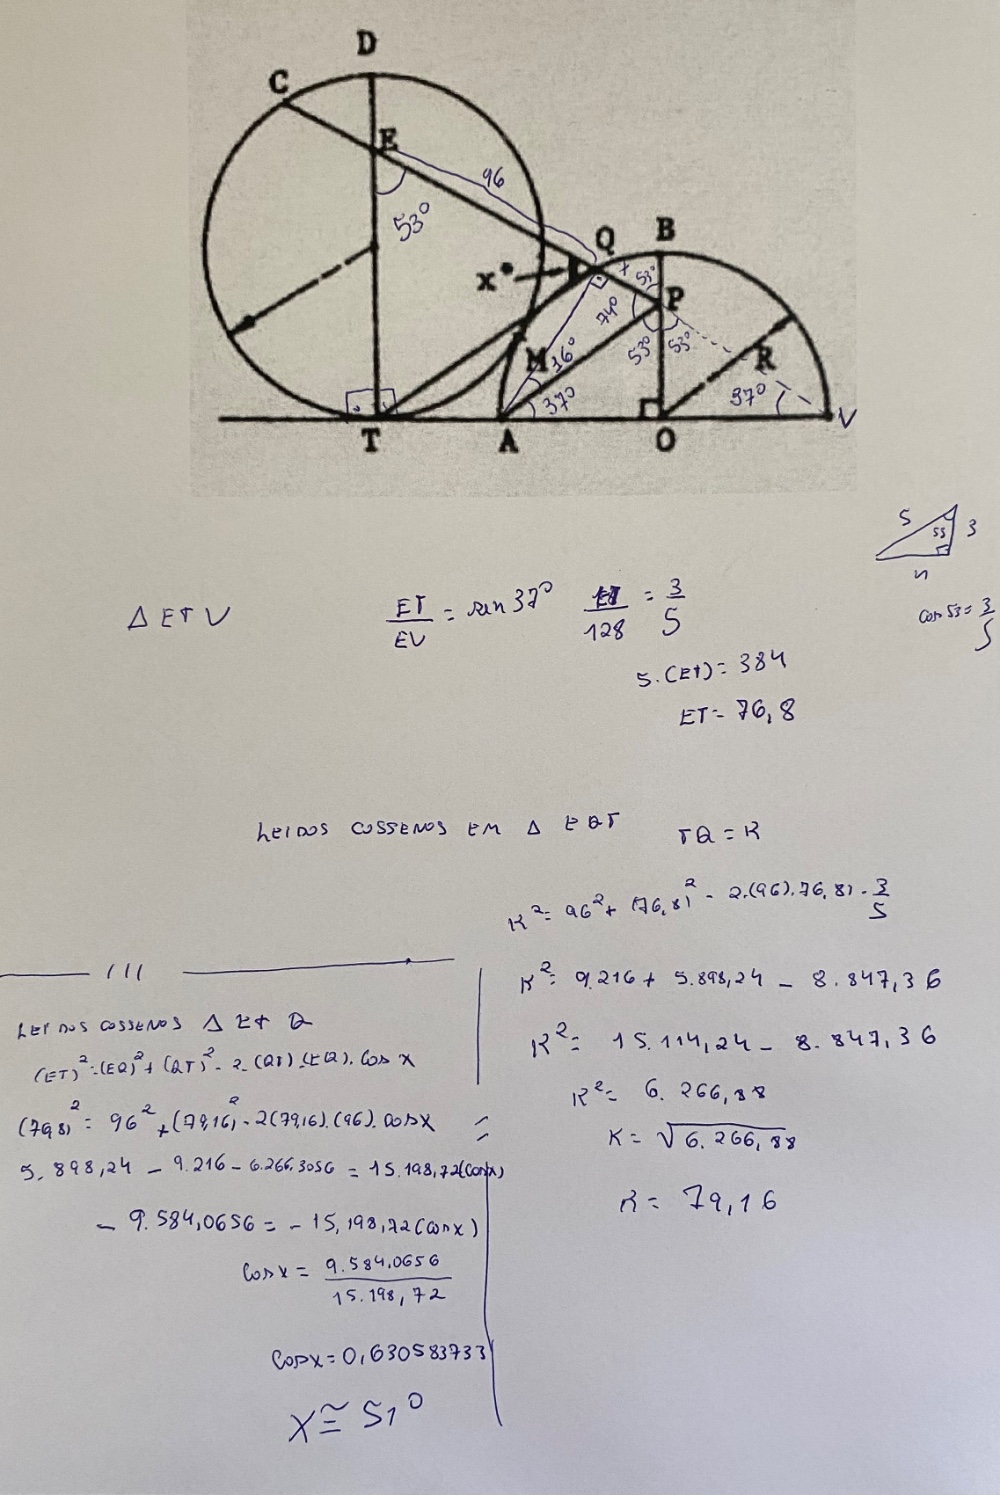 D
C
E
96
53°
Q
B
x°
x
53°
P
74°
M
16°
53°
53°
R
37°
37°
V
T
A
O
5
53
3
4
cos 53 = 3/5
Δ ETV
ET/EV = sen 37°
ET/128 = 3/5
5.(ET) = 384
ET = 76,8
LEI DOS COSSENOS EM Δ EQT
TQ = K
K² = 96² + (76,8)² - 2.(96).76,8) . 3/5
K² = 9.216 + 5.898,24 - 8.847,36
K² = 15.114,24 - 8.847,36
K² = 6.266,88
K = √6.266,88
K = 79,16
LEI DOS COSSENOS Δ ET Q
(ET)² = (EQ)² + (QT)² - 2.(QT).(EQ). cos x
(76,8)² = 96² + (79,16)² - 2(79,16).(96). cos x
5.898,24 - 9.216 - 6.266.3056 = 15.198,72(cos x)
- 9.584,0656 = - 15,198,72(cos x)
cos x = 9.584,0656/15.198,72
cos x = 0,630583733
x ≅ 51°